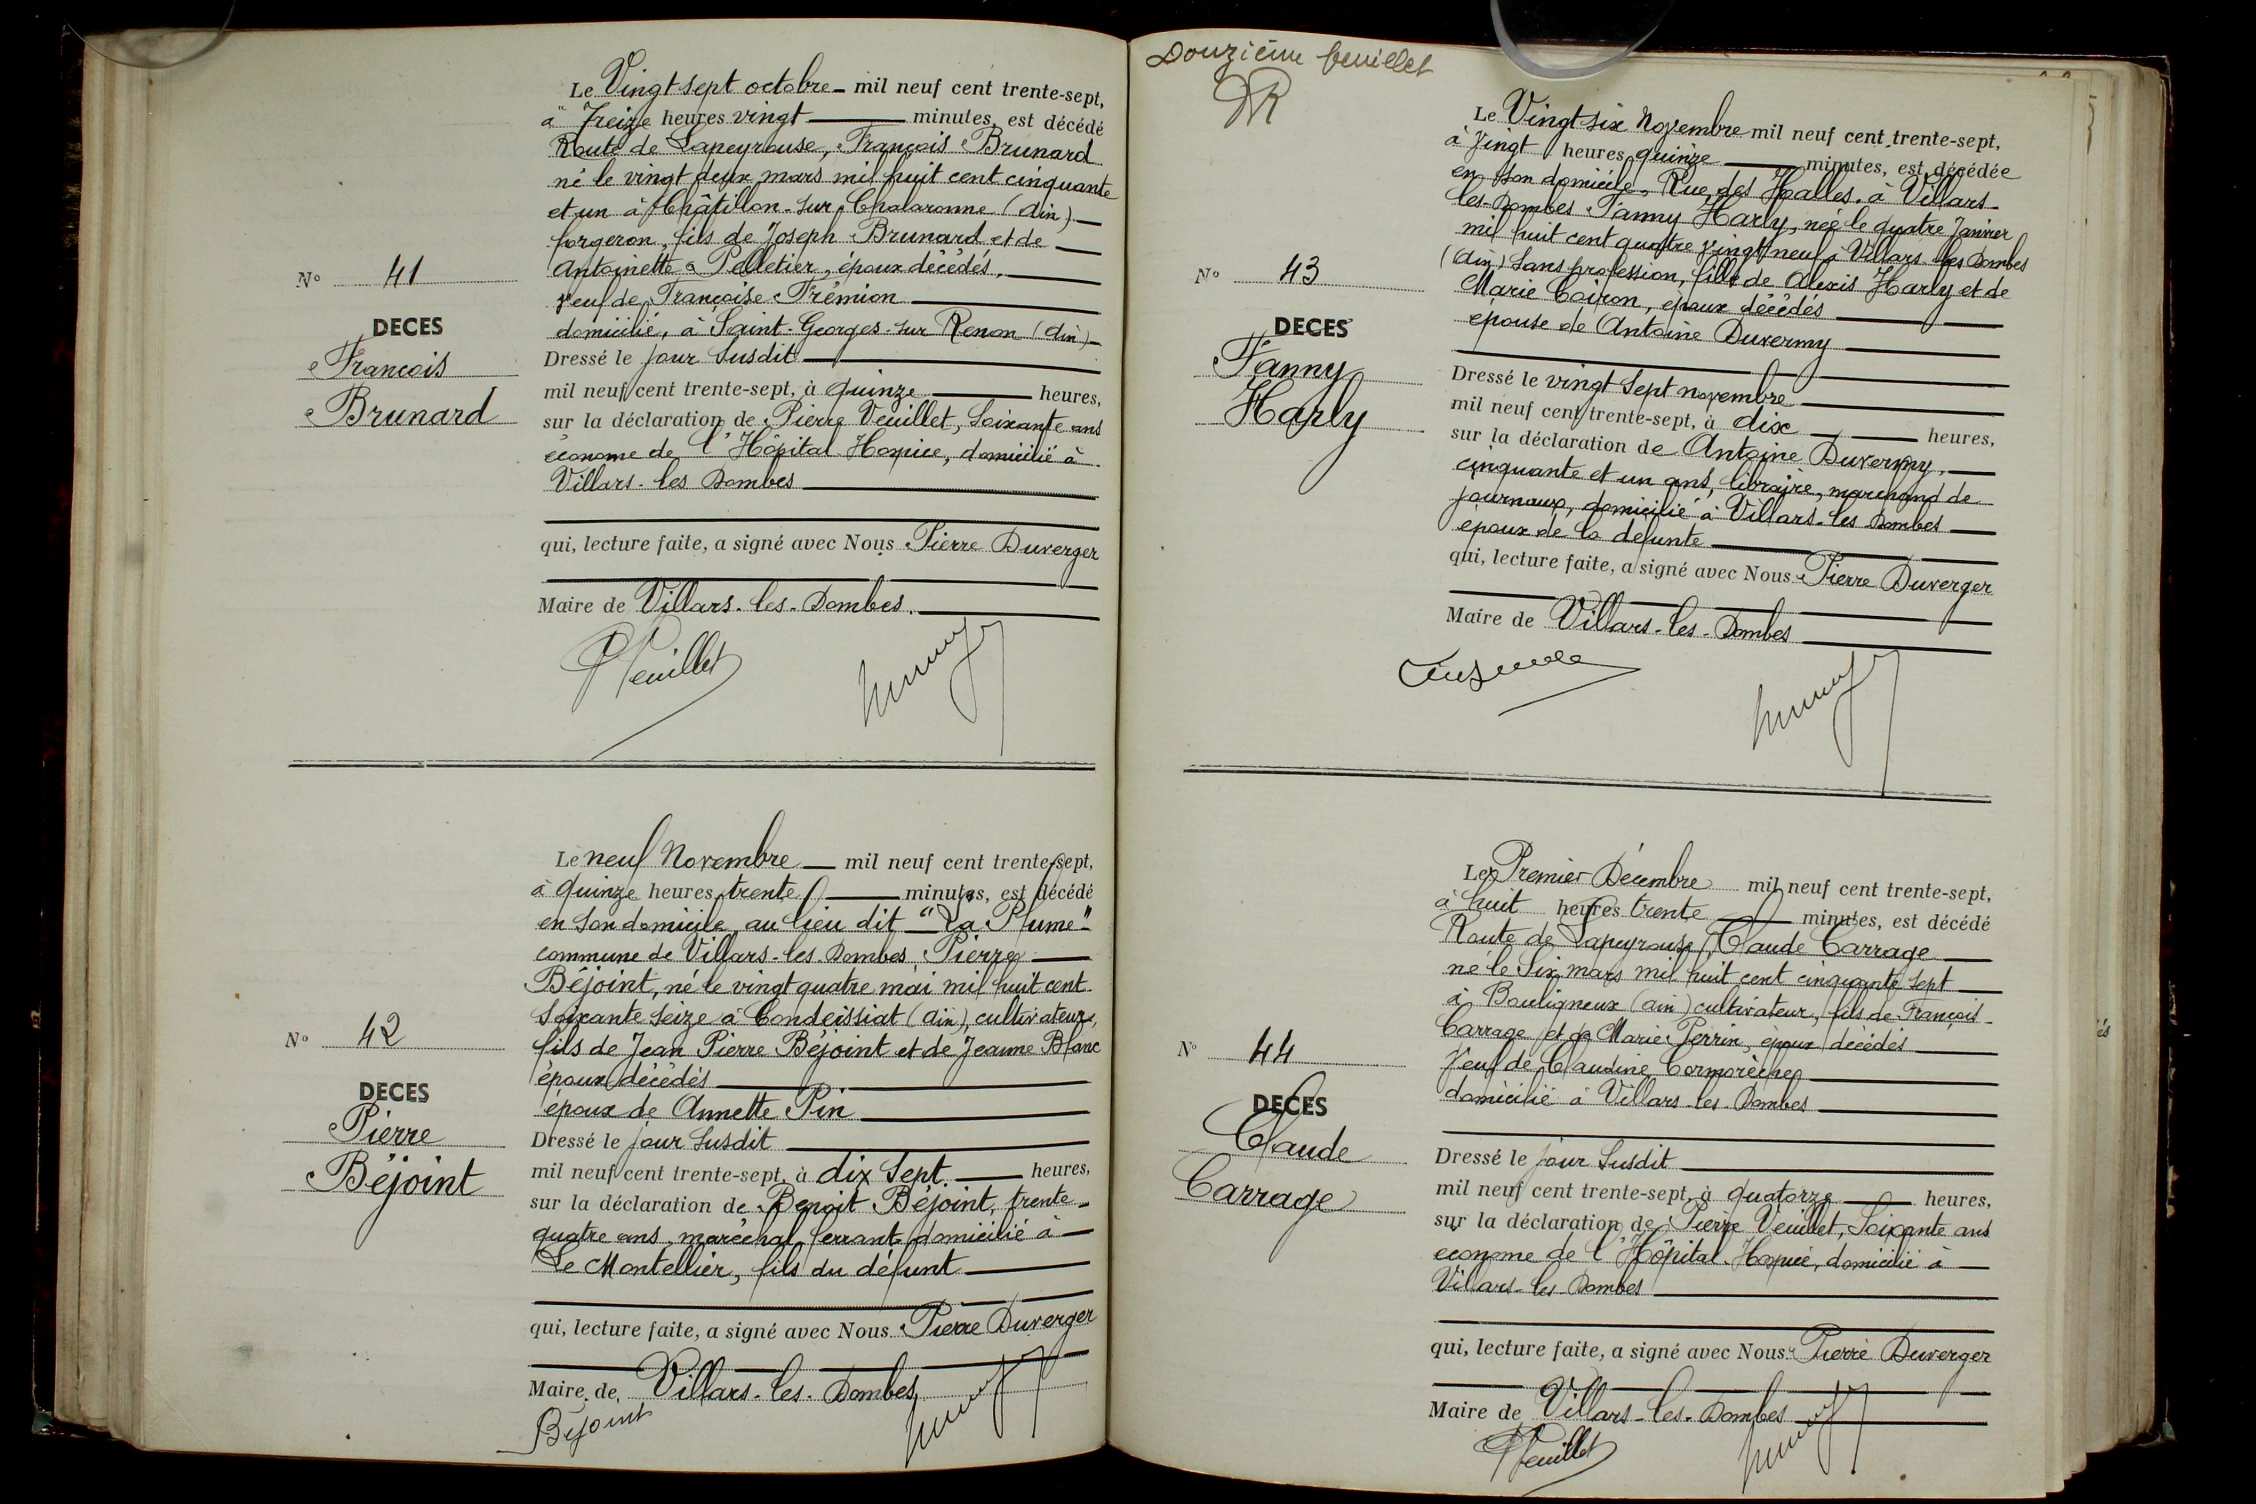 Le Vingt sept octobre mil neuf cent trente-sept,
à Treize heures vingt minutes, est décédé
Route de Lapeyrouse, François Brunard
né le vingt deux mars mil huit cent cinquante
et un à Châtillon-sur-Chalaronne (Ain)
forgeron, fils de Joseph Brunard et de
Antoinette Pelletier, époux décédés,
veuf de Françoise Frémion
domicilié, à Saint-Georges-sur Renon (Ain)
N° 41
DECES
François
Brunard
Dressé le jour susdit
mil neuf cent trente-sept, à quinze heures,
sur la déclaration de Pierre Veuillet, Soixante ans
économe de l'Hôpital-Hospice, domicilié à
Villars-les Dombes
qui, lecture faite, a signé avec Nous Pierre Duverger
Maire de Villars-les-Dombes.
PVeuillet
Le neuf Novembre mil neuf cent trente-sept,
à quinze heures trente minutes, est décédé
en son domicile, au lieu dit "La Plume"
commune de Villars-les-Dombes, Pierre
Béjoint, né le vingt quatre mai mil huit cent
soixante seize à Condeissiat (Ain), cultivateur,
fils de Jean Pierre Béjoint et de Jeanne Blanc
époux décédés
époux de Annette Pin
N° 42
DECES
Pierre
Béjoint
Dressé le jour susdit
mil neuf cent trente-sept, à dix sept heures,
sur la déclaration de Benoit Béjoint, trente-
quatre ans, maréchal ferrant domicilié à
Le Montellier, fils du défunt
qui, lecture faite, a signé avec Nous Pierre Duverger
Maire de Villars-les-Dombes
Béjoint
Douzième feuillet
Le Vingt six Novembre mil neuf cent trente-sept,
à Vingt heures quinze minutes, est décédée
en son domicile, Rue des Halles, à Villars-
les-Dombes Fanny Harly, née le quatre Janvier
mil huit cent quatre vingt neuf à Villars-les Dombes
(Ain) Sans profession, fille de Alexis Harly et de
Marie Coiron, époux décédés
épouse de Antoine Duvermy
N° 43
DECES
Fanny
Harly
Dressé le vingt sept novembre
mil neuf cent trente-sept, à dix heures,
sur la déclaration de Antoine Duvermy,
cinquante et un ans, libraire, marchand de
journaux, domicilié à Villars-les Dombes
époux de la défunte
qui, lecture faite, a signé avec Nous Pierre Duverger
Maire de Villars-les-Dombes
Le Premier Décembre mil neuf cent trente-sept,
à huit heures trente minutes, est décédé
Route de Lapeyrouse, Claude Carrage
né le Six mars mil huit cent cinquante sept
à Bouligneux (Ain) cultivateur, fils de François
Carrage et de Marie Perrin, époux décédés
Veuf de Claudine Cormorèche
domicilié à Villars-les-Dombes
N° 44
DECES
Claude
Carrage
Dressé le jour susdit
mil neuf cent trente-sept, à quatorze heures,
sur la déclaration de Pierre Veuillet, Soixante ans
econome de l'Hôpital-Hospice, domicilié à
Villars-les-Dombes
qui, lecture faite, a signé avec Nous Pierre Duverger
Maire de Villars-les-Dombes
PVeuillet